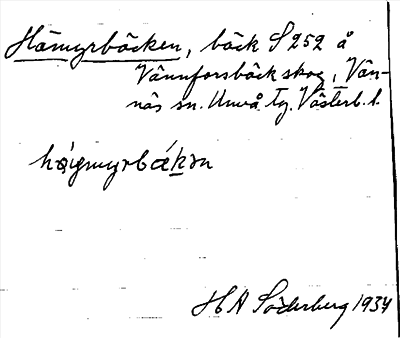 Hämyrbäcken, bäck S 252 å
Vännforsbäck skog, Vän-
näs sn. Umeå tg. Västerb. l.
håi̯gmyrbäkən
H A Söderberg 1934